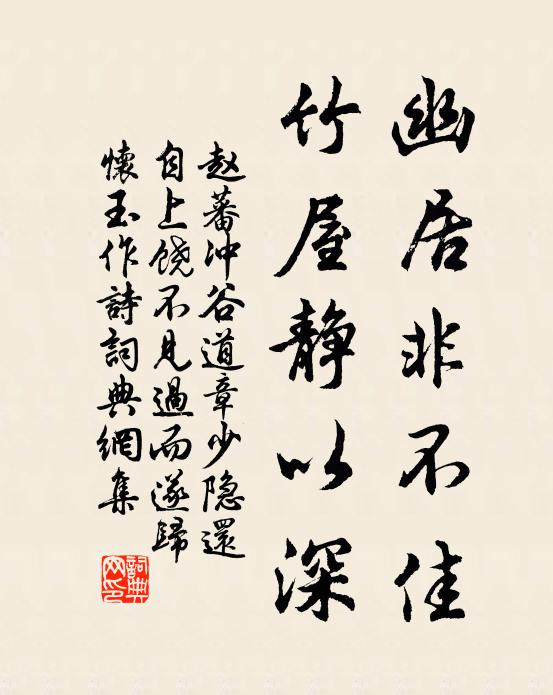 幽居非不佳
竹屋静以深
赵蕃沖谷道章少隐還
自上饶不見過而遂歸
懷玉作詩詞典網集
詞典
网印